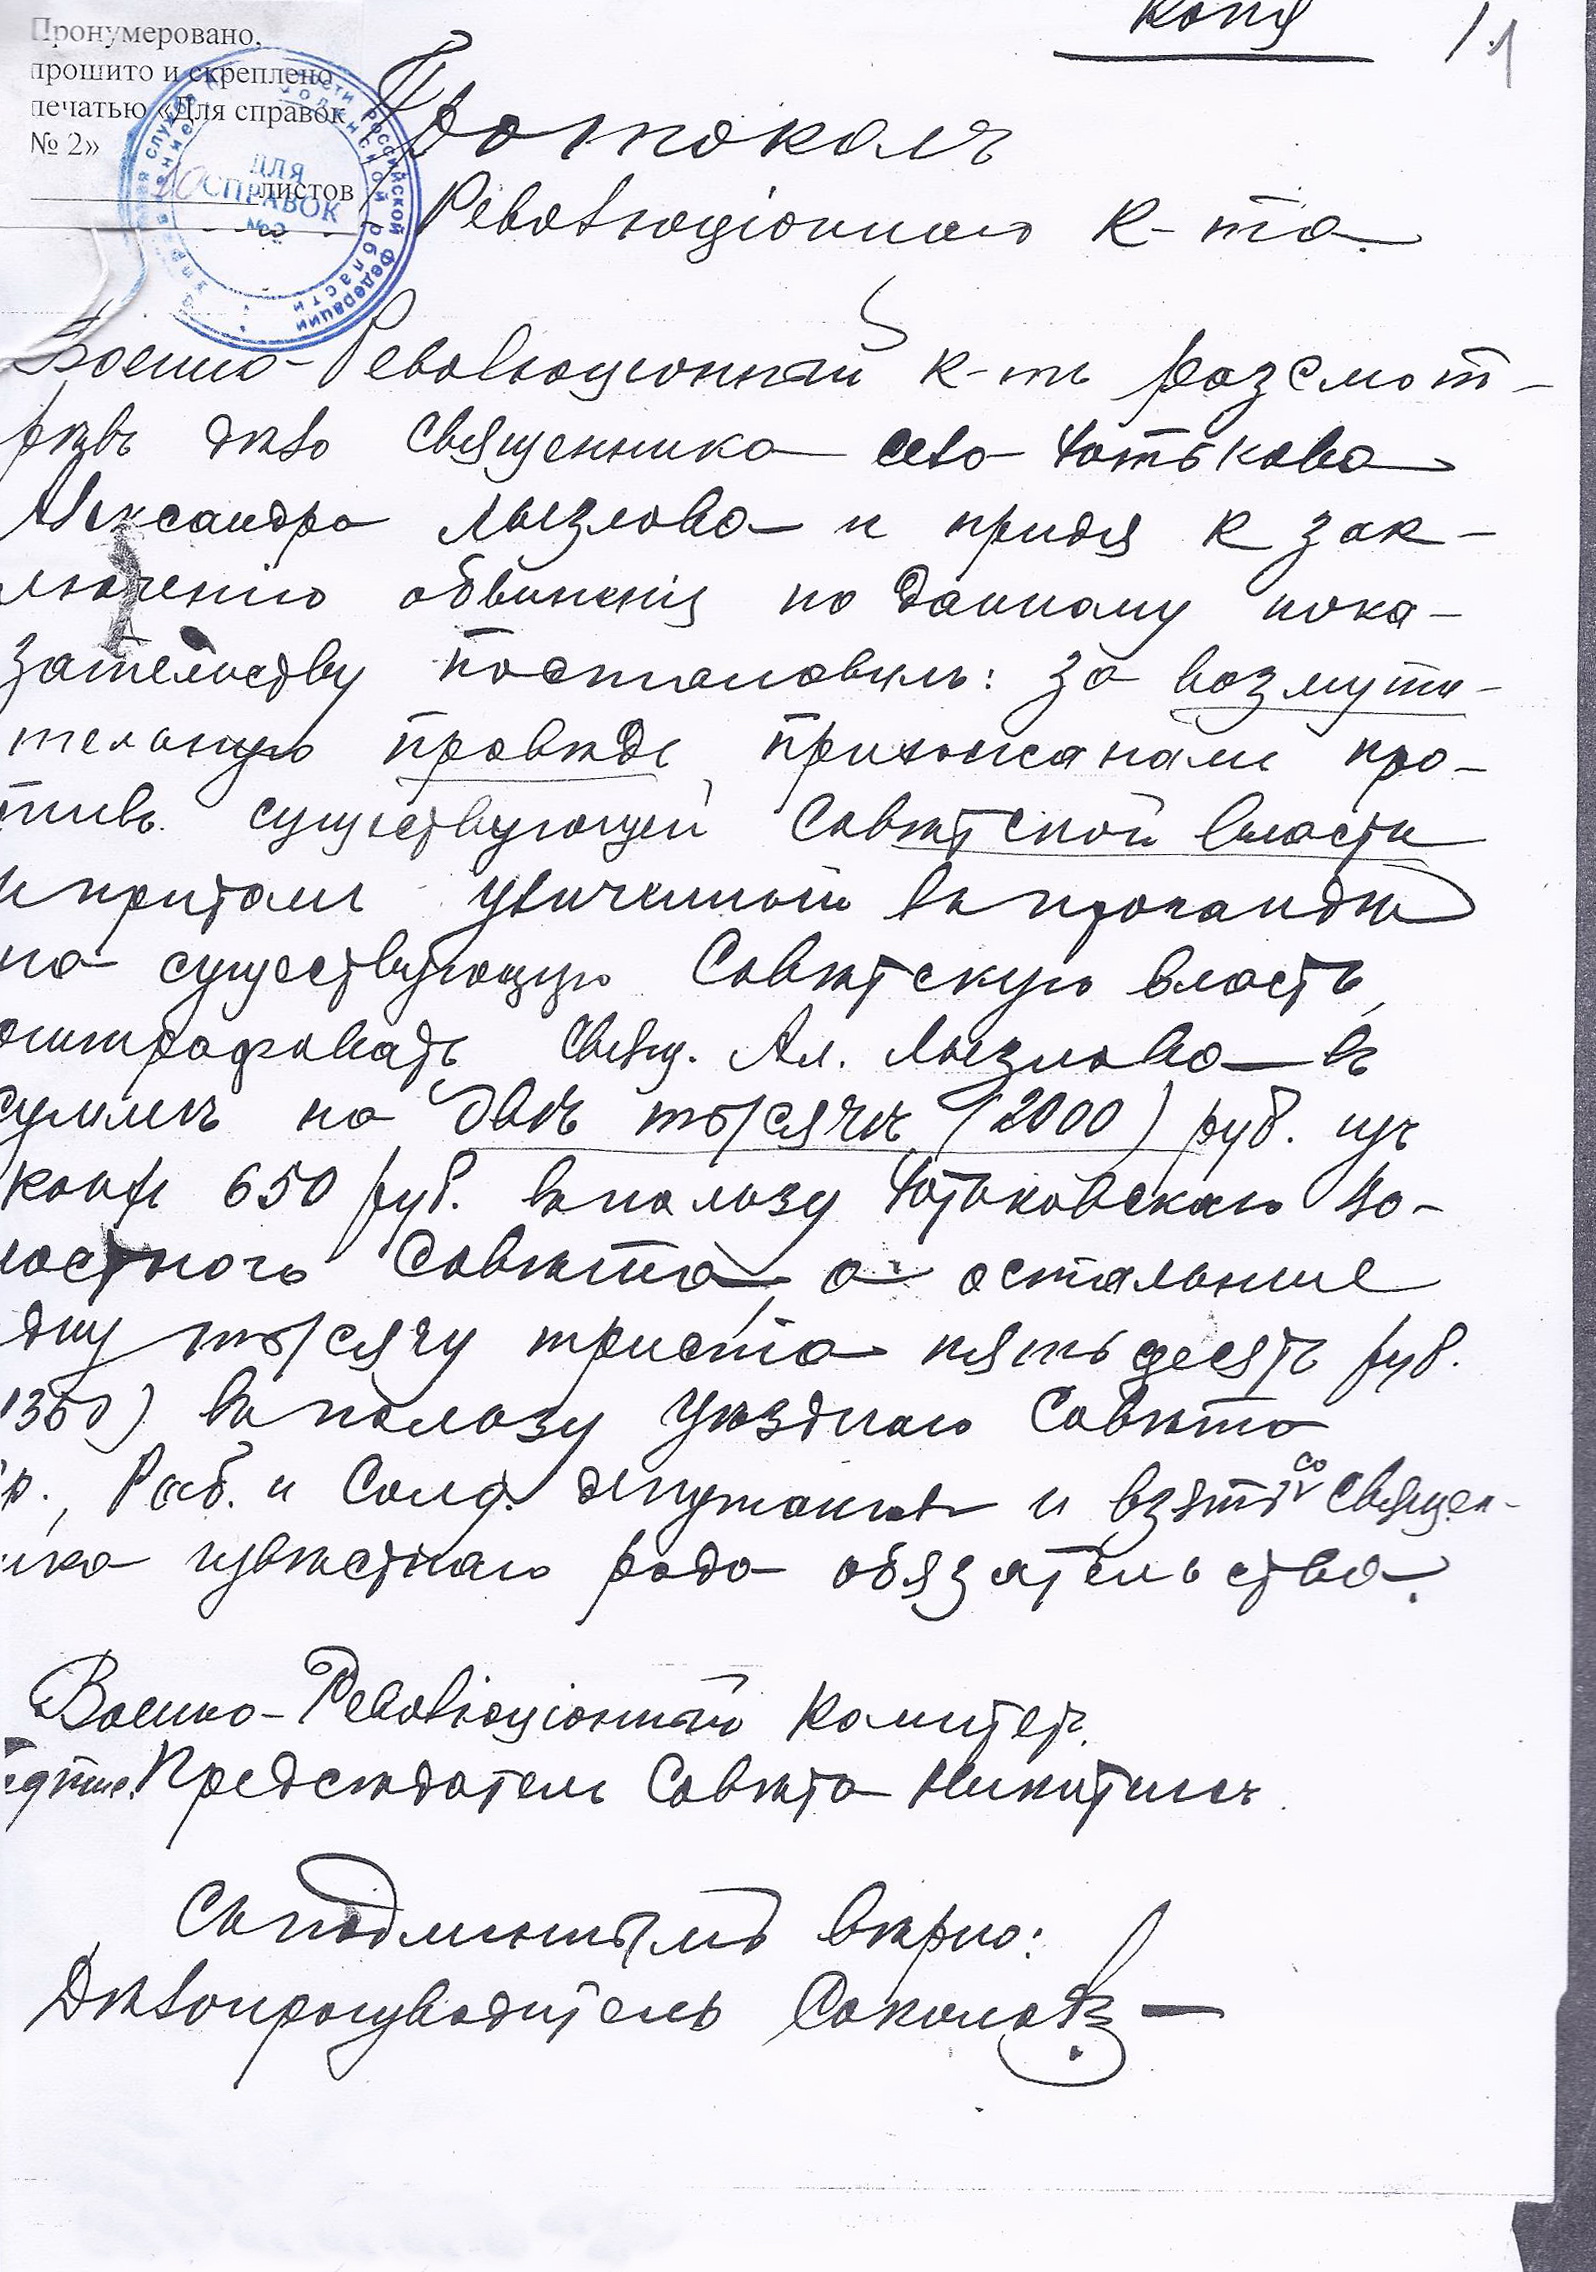 Копія
11
Пронумеровано,
прошито и скреплено
печатью «Для справок
№ 2»
листов
ДЛЯ
СПРАВОК
№ 2
Протоколъ
Революціоннаго К-та.
Военно-Революціонный К-тъ разсмот-
рѣвъ дѣло священника села Чотькова
Александра Лызлова и придя к зак-
люченію обвиненія по данному пока-
зательству постановилъ: за возмути-
тельную правѣде, прихожанами про-
тивъ существующей Совѣтской власти
и притомъ уличенный въ пропагандѣ
на существующую Совѣтскую власть,
оштрафовать Свящ. Ал. Лызлова въ
суммѣ на двѣ тысячи (2000) руб. изъ
коихъ 650 руб. въ пользу Чотьковскаго Во-
лостного Совѣта, а остальные
одну тысячу триста пятьдесятъ руб.
1350) въ пользу Уѣзднаго Совѣта
Кр., Раб. и Солд. депутатовъ и взять со Священ-
ника извѣстнаго рода обязательства.
Военно-Революціонный Комитетъ.
Предсѣдатель Совѣта Никитинъ.
Съ подлиннымъ вѣрно:
Дѣлопроизводитель Соколовъ